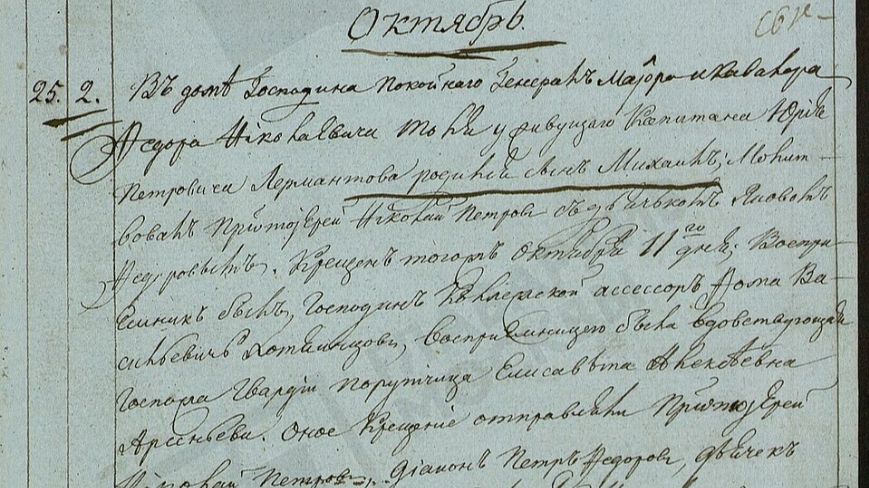 Октябрь.
25. 2. Въ домѣ Господина покойнаго Генералъ Маіора и кавалера
Ѳедора Николаевича Толи у живущаго Капитана Юрiя
Петровича Лермантова родился сынъ Михаилъ; Молит-
вовалъ Протоіерей Николай Петровъ съ дьячькомъ Яковомъ
Ѳедоровымъ. Крещенъ тогожъ Октября 11го дня; Воспри-
емникъ былъ, Господинъ Коллежской ассессоръ Ѳома Ва-
сильевичь Хотяинцовъ, Восприемницею была вдовствующая
Госпожа Гвардіи порутчица Елисавета Алексѣевна
Арсеньева. Оное Крещеніе отправляли Протоіерей
Николай Петровъ, діаконъ Петръ Ѳедоровъ, дьячекъ